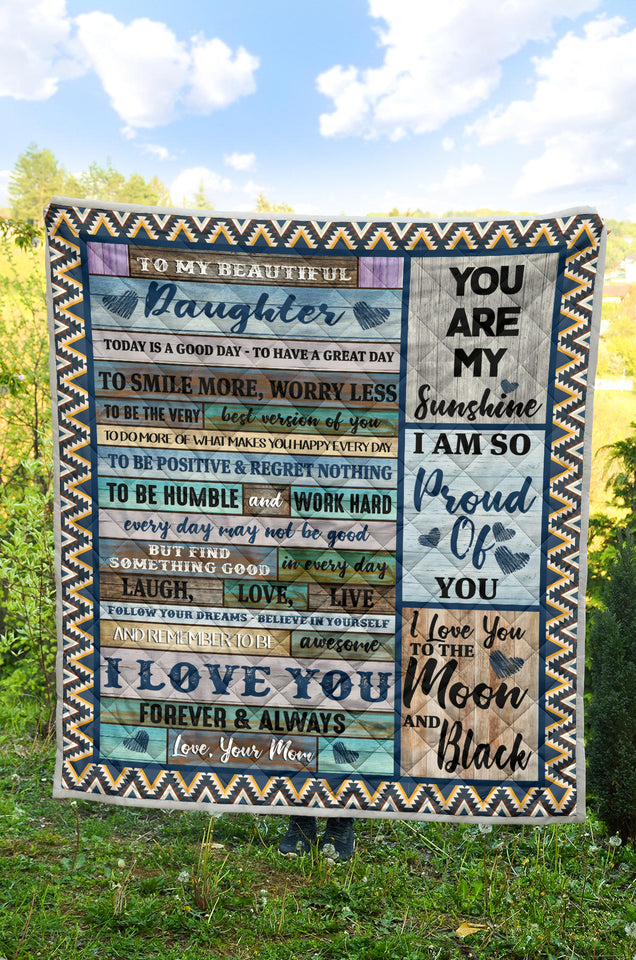 TO MY BEAUTIFUL
Daughter
TODAY IS A GOOD DAY - TO HAVE A GREAT DAY
TO SMILE MORE, WORRY LESS
TO BE THE VERY best version of you
TO DO MORE OF WHAT MAKES YOU HAPPY EVERY DAY
TO BE POSITIVE & REGRET NOTHING
TO BE HUMBLE and WORK HARD
every day may not be good
BUT FIND
SOMETHING GOOD in every day
LAUGH, LOVE, LIVE
FOLLOW YOUR DREAMS - BELIEVE IN YOURSELF
AND REMEMBER TO BE awesome
I LOVE YOU
FOREVER & ALWAYS
Love, Your Mom
YOU
ARE
MY
Sunshine
I AM SO
Proud
Of
YOU
I Love You
TO THE
Moon
AND
Black